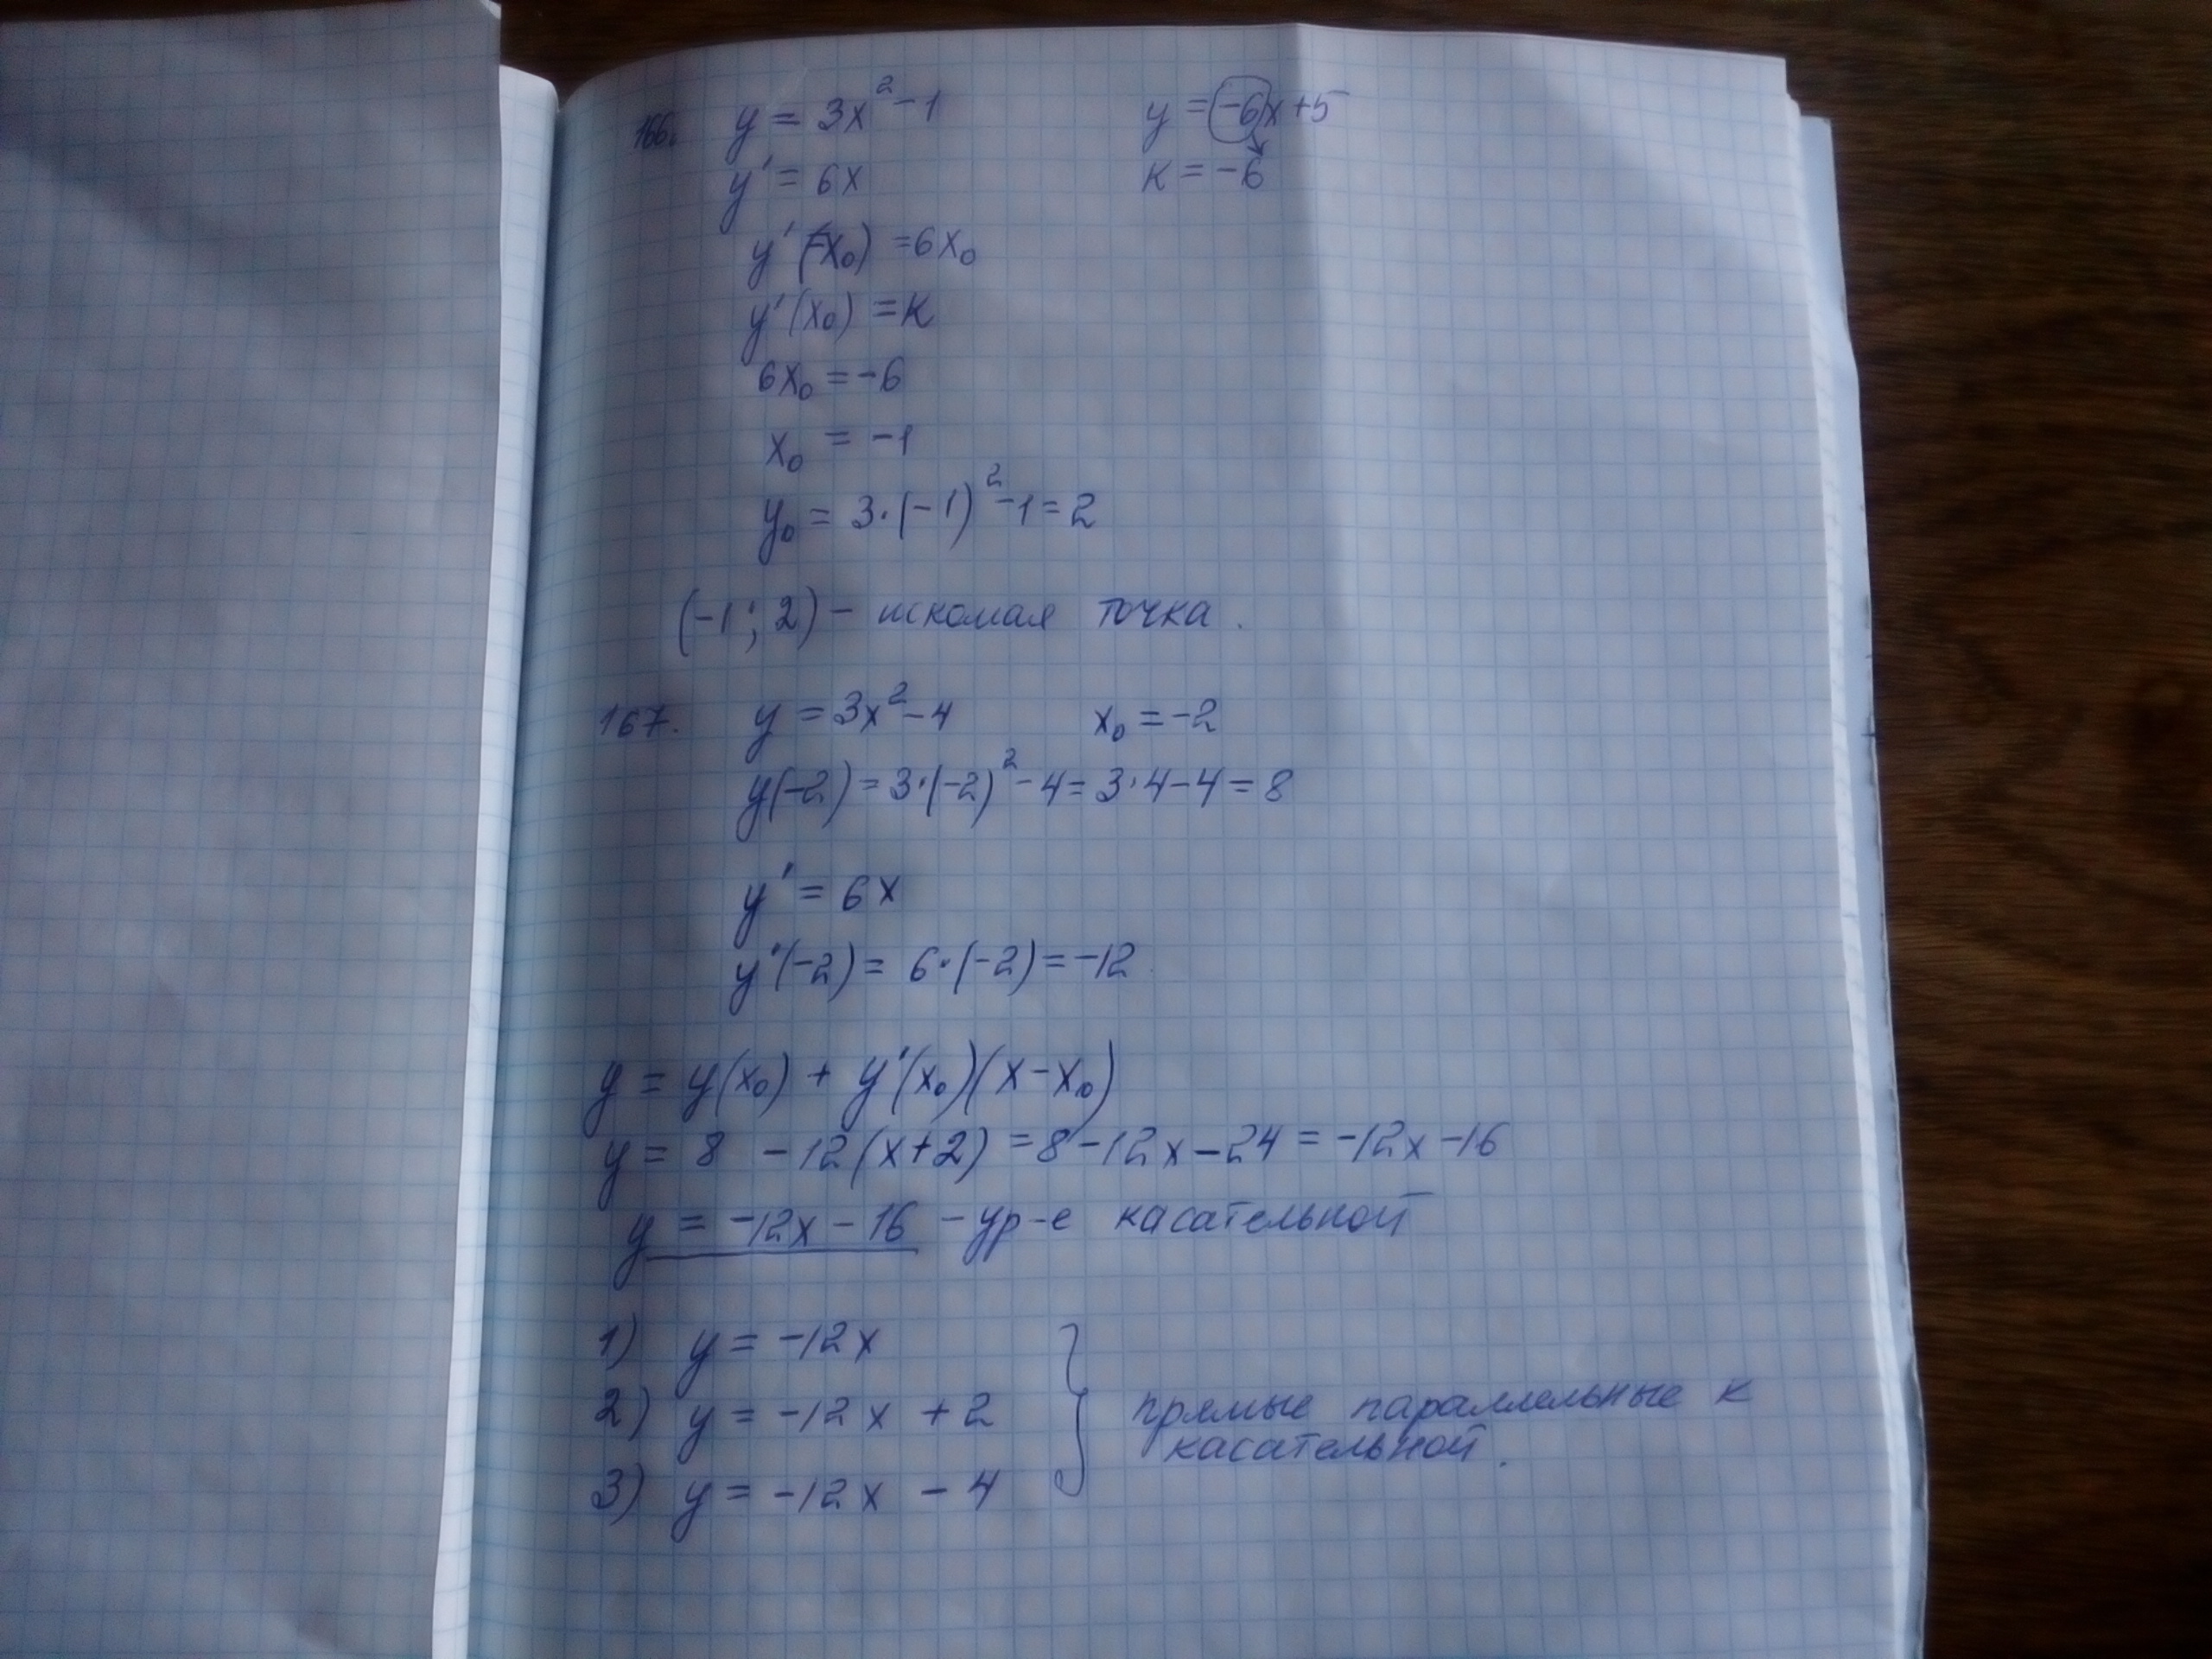 166. y = 3x² - 1 y = -6x + 5
y' = 6x к = -6
y'(x₀) = 6x₀
y'(x₀) = к
6x₀ = -6
x₀ = -1
y₀ = 3·(-1)² - 1 = 2
(-1; 2) - искомая точка.
167. y = 3x² - 4 x₀ = -2
y(-2) = 3·(-2)² - 4 = 3·4 - 4 = 8
y' = 6x
y'(-2) = 6·(-2) = -12
y = y(x₀) + y'(x₀)(x - x₀)
y = 8 - 12(x+2) = 8 - 12x - 24 = -12x - 16
y = -12x - 16 - ур-е касательной
1) y = -12x
2) y = -12x + 2 прямые параллельные к
касательной.
3) y = -12x - 4